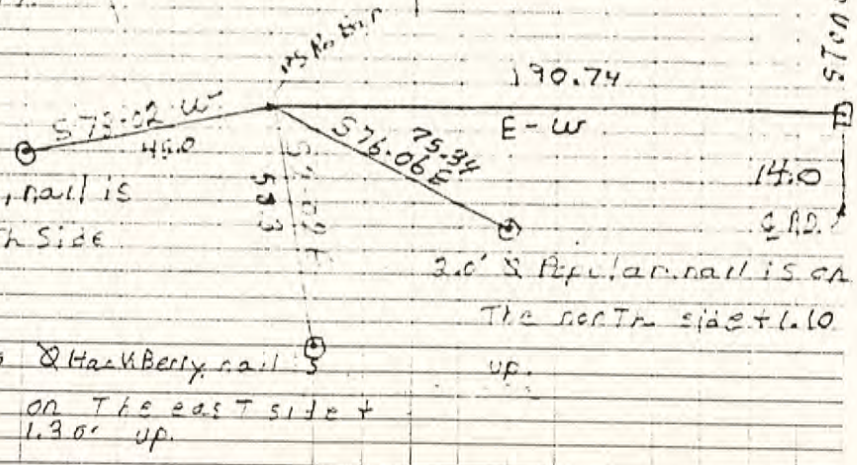 190.74
E-W
S 73.02 W
45.0
75.34
S76.06E
53.3
14.0
℄ RD.
, nail is
h Side
2.0' Popular, nail is on
The north side + 1.10
up.
HackBerry, nail is
on The east side +
1.30' up.